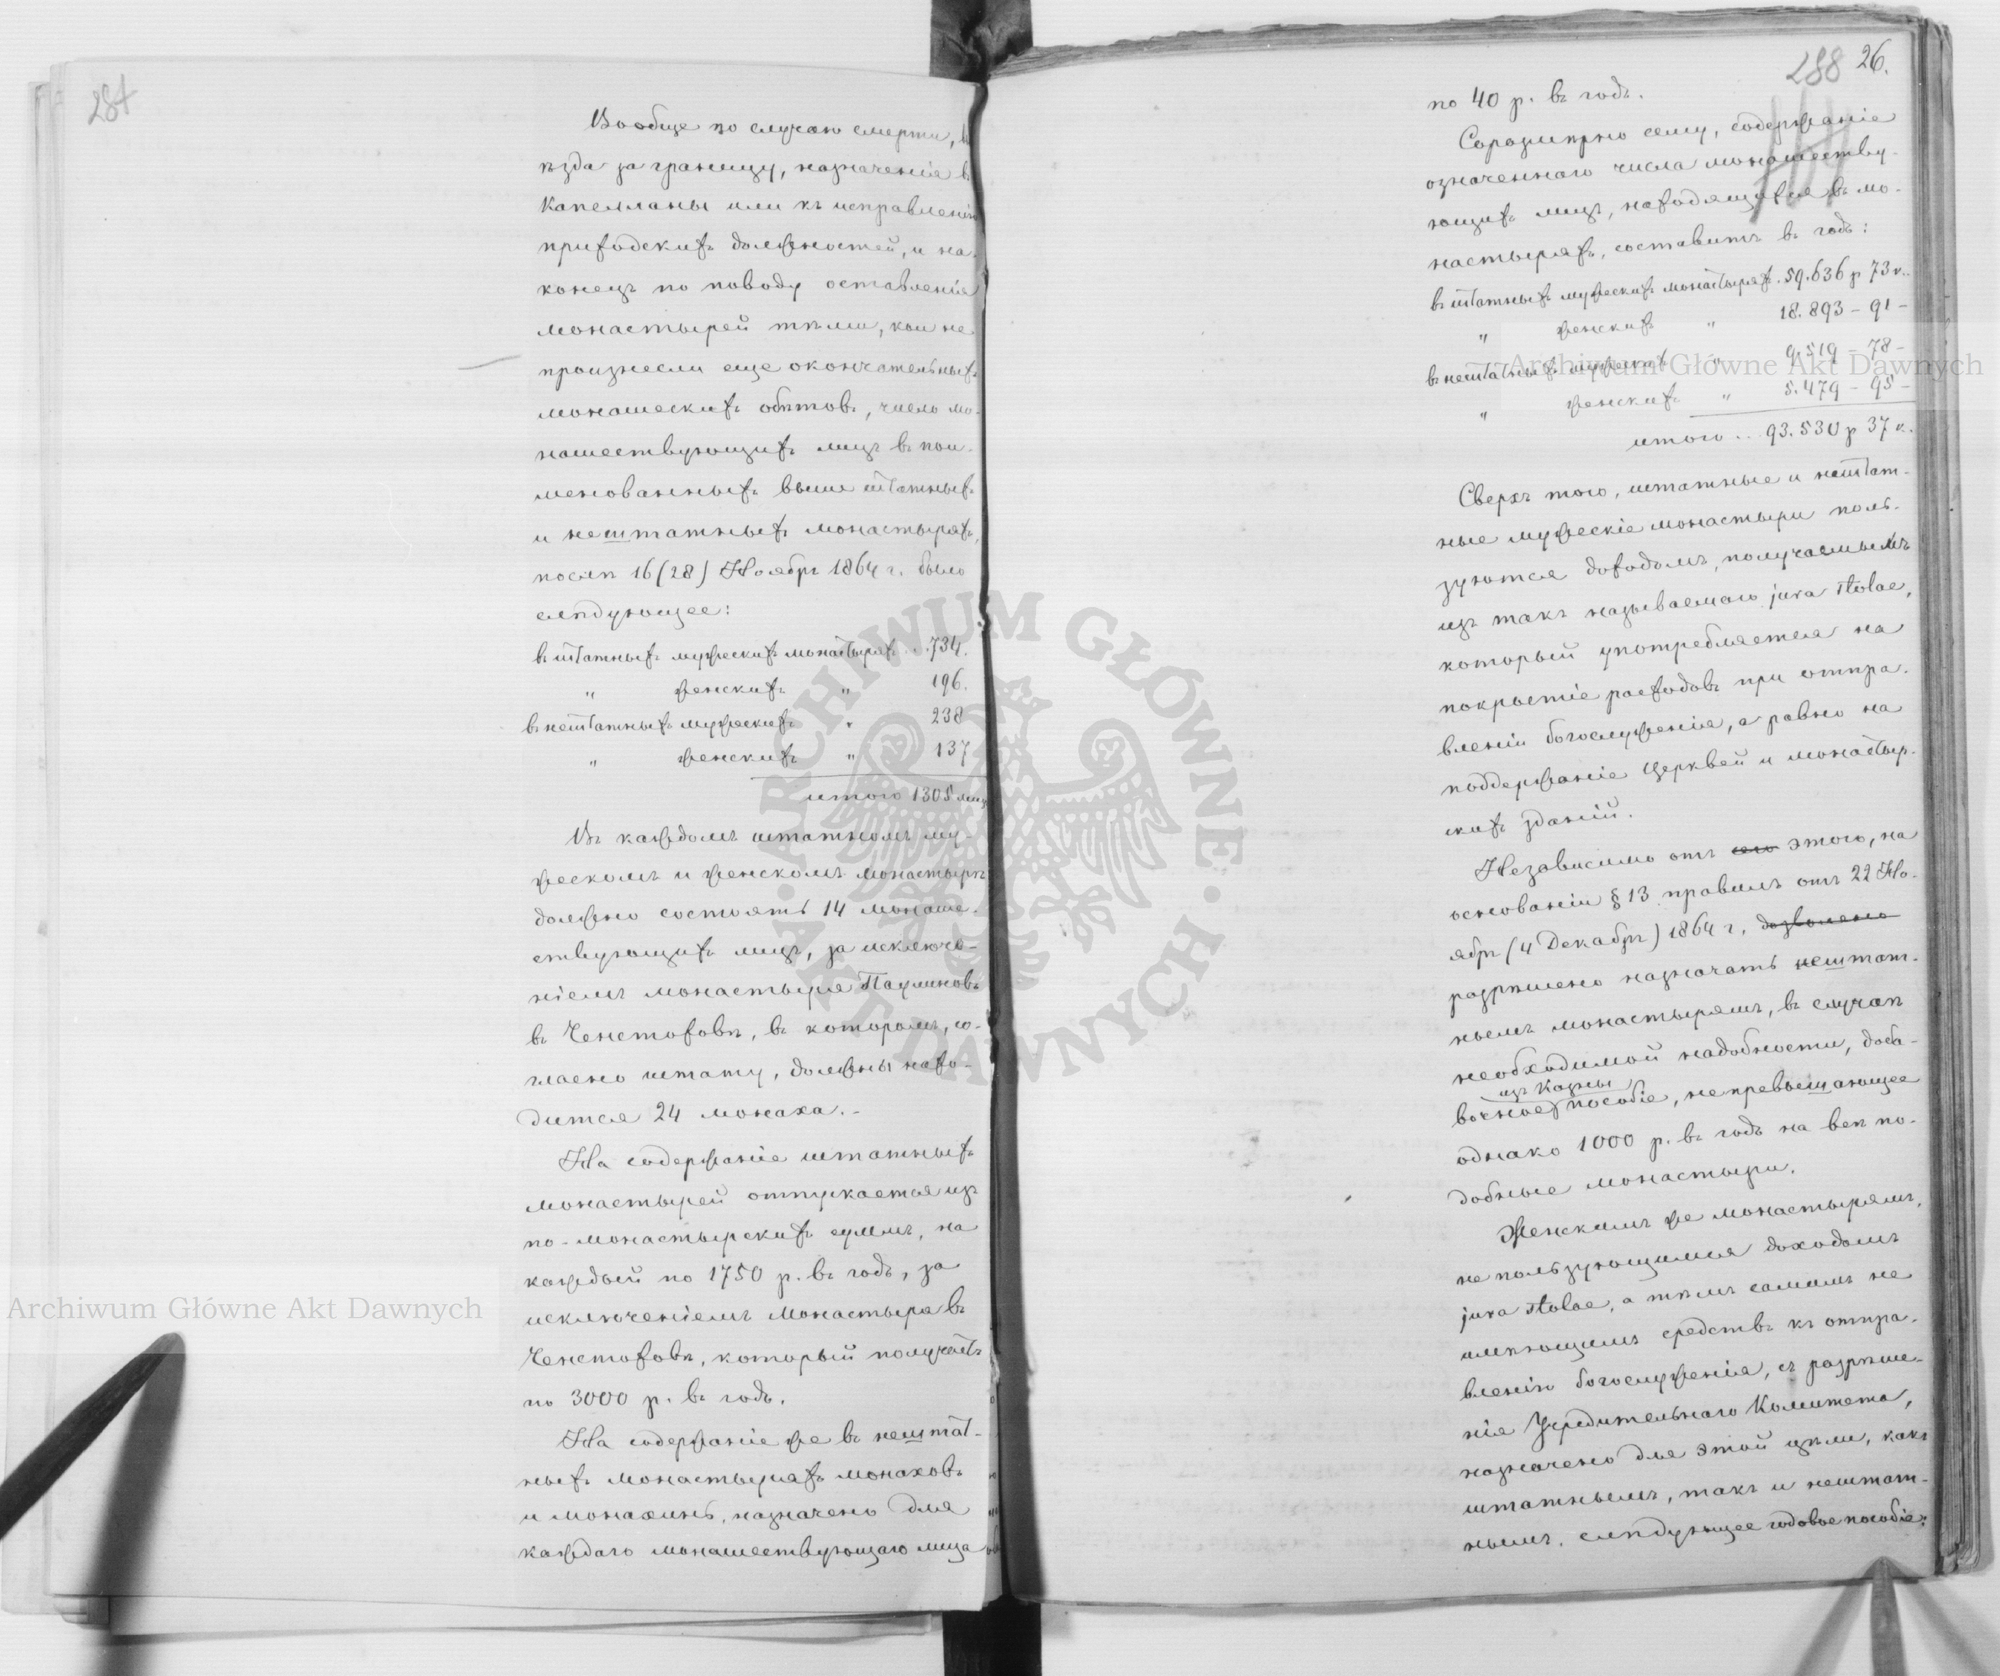 287
Вообще по случаю смерти, вы
ѣзда за границу, назначенія въ
Капелланы или къ исправленію
приходскихъ должностей, и на-
конецъ по поводу оставленія
монастырей тѣми, кои не
произнесли еще окончательныхъ
монашескихъ обѣтовъ, число мо-
нашествующихъ лицъ въ пои-
менованныхъ выше штатныхъ
и нештатныхъ монастыряхъ,
послѣ 16 (28) Ноября 1864 г. было
слѣдующее:
въ штатныхъ мужескихъ монастыряхъ . . 734.
" женскихъ " 196.
въ нештатныхъ мужескихъ " 238
" женскихъ " 137
итого 1305 лицъ
Въ каждомъ штатномъ му-
жескомъ и женскомъ монастырѣ
должно состоять 14 монаше-
ствующихъ лицъ, за исключе-
ніемъ монастыря Паулиновъ
въ Ченстоховѣ, въ которомъ, со-
гласно штату, должны нахо-
дится 24 монаха. -
На содержаніе штатныхъ
монастырей отпускается изъ
по-монастырскихъ суммъ, на
каждый по 1750 р. въ годъ, за
исключеніемъ монастыря въ
Ченстоховѣ, который получаетъ
по 3000 р. въ годъ.
На содержаніе же въ нештат-
ныхъ монастыряхъ монаховъ
и монахинь, назначено для
каждаго монашествующаго лица
288 26.
по 40 р. въ годъ.
Соразмѣрно сему, содержаніе
означеннаго числа монашеству-
ющихъ лицъ, находящихся въ мо-
настыряхъ, составитъ въ годъ:
въ штатныхъ мужескихъ монастыряхъ . 59.636 р 73 к.
" женскихъ " 18.893 - 91 -
въ нештатныхъ мужескихъ " 9.519 - 78 -
" женскихъ " 5.479 - 95 -
итого . . 93.530 р 37 к.
Сверхъ того, штатные и нештат-
ные мужескіе монастыри поль-
зуются доходомъ, получаемымъ
изъ такъ называемаго jura stolae,
который употребляется на
покрытіе расходовъ при отпра-
вленіи богослуженія, а равно на
поддержаніе Церквей и монастыр-
скихъ зданій.
Независимо отъ сего этого, на
основаніи § 13 правилъ отъ 22 Но-
ября (4 Декабря) 1864 г, дозволено
разрѣшено назначать нештат-
нымъ монастырямъ, въ случаѣ
необходимой надобности, доба-
изъ Казны
вочное пособіе, непревышающее
однако 1000 р. въ годъ на всѣ по-
добные монастыри.
Женскимъ же монастырямъ,
не пользующимся доходомъ
jura stolae, а тѣмъ самымъ не
имѣющимъ средствъ къ отпра-
вленію богослуженія, съ разрѣше-
нія Учредительнаго Комитета,
назначено для этой цѣли, какъ
штатнымъ, такъ и нештат-
нымъ, слѣдующее годовое пособіе:
Archiwum Główne Akt Dawnych
Archiwum Główne Akt Dawnych
ARCHIWUM GŁÓWNE
AKT DAWNYCH